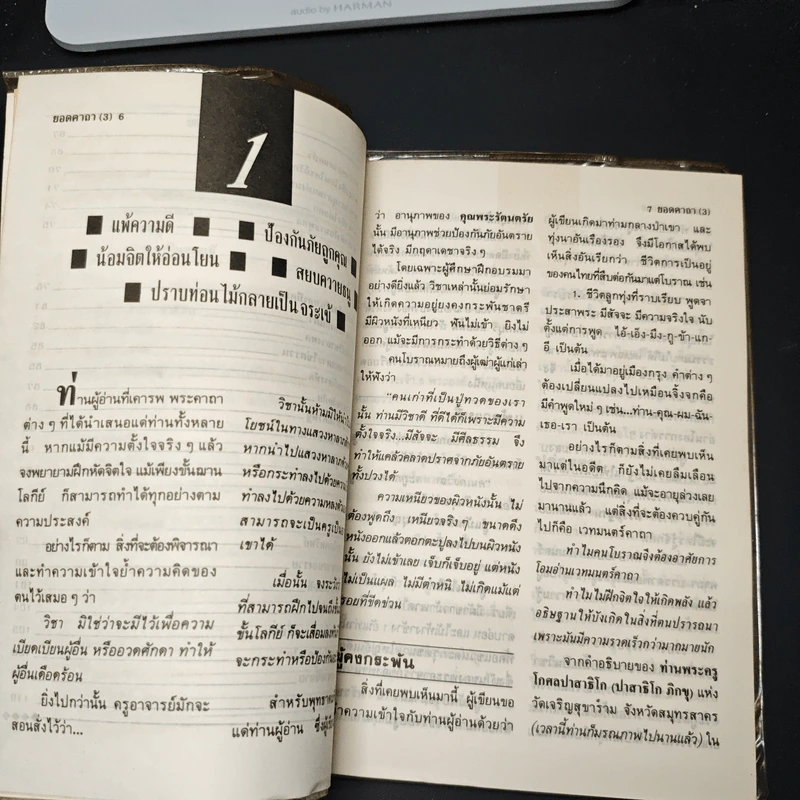 audio by HARMAN
ยอดคาถา (3) 6
1
แพ้ความดี ป้องกันภัยถูกคุณ
น้อมจิตให้อ่อนโยน สยบควายธนู
ปราบท่อนไม้กลายเป็น จระเข้
ท่านผู้อ่านที่เคารพ พระคาถา
ต่าง ๆ ที่ได้นำเสนอแด่ท่านทั้งหลาย
นี้ หากแม้มีความตั้งใจจริง ๆ แล้ว
จงพยายามฝึกหัดจิตใจ แม้เพียงขั้นฌาน
โลกีย์ ก็สามารถทำได้ทุกอย่างตาม
ความประสงค์
อย่างไรก็ตาม สิ่งที่จะต้องพิจารณา
และทำความเข้าใจย้ำความคิดของ
ตนไว้เสมอ ๆ ว่า
วิชา มิใช่ว่าจะมีไว้เพื่อความ
เบียดเบียนผู้อื่น หรืออวดศักดา ทำให้
ผู้อื่นเดือดร้อน
ยิ่งไปกว่านั้น ครูอาจารย์มักจะ
สอนสั่งไว้ว่า...
วิชานั้นห้ามมิให้
โยชน์ในทางแสวงหาลาภ
หากนำไปแสวงหาลาภ
หรือกระทำลงไปด้วยความ
ทำลงไปด้วยความหลง
สามารถจะเป็นครู
เขาได้
เมื่อนั้น จงระวัง
ที่สามารถฝึกไปจนถึง
ขั้นโลกีย์ ก็จะเสื่อมลง
จะกระทำหรือป้องกัน
สำหรับพุทธา
แด่ท่านผู้อ่าน ซึ่ง
7 ยอดคาถา (3)
ว่า อานุภาพของ คุณพระรัตนตรัย
นั้น มีอานุภาพช่วยป้องกันภัยอันตราย
ได้จริง มีกฤดาเดชาจริง ๆ
โดยเฉพาะผู้ศึกษาฝึกอบรมมา
อย่างดียิ่งแล้ว วิชาเหล่านั้นย่อมรักษา
ให้เกิดความอยู่ยงคงกระพันชาตรี
มีผิวหนังที่เหนียว ฟันไม่เข้า ยิงไม่
ออก แม้จะมีการกระทำด้วยวิธีต่าง ๆ
คนโบราณหมายถึงผู้เฒ่าผู้แก่เล่า
ให้ฟังว่า
"คนเก่าที่เป็นปู่ทวดของเรา
นั้น ท่านมีวิชาดี ที่ดีได้ก็เพราะมีความ
ตั้งใจจริง...มีสัจจะ มีศีลธรรม จึง
ทำให้แคล้วคลาดปราศจากภัยอันตราย
ทั้งปวงได้
ความเหนียวของผิวหนังนั้น ไม่
ต้องพูดถึง เหนียวจริง ๆ ขนาดดึง
หนังออกแล้วตอกตะปูลงไปบนผิวหนัง
นั้น ยังไม่เข้าเลย เจ็บก็เจ็บอยู่ แต่หนัง
ไม่เป็นแผล ไม่มีตำหนิ ไม่เกิดแม้แต่
รอยที่ขีดข่วน
ผู้คงกระพัน
สิ่งที่เคยพบเห็นมานี้ ผู้เขียนขอ
ทำความเข้าใจกับท่านผู้อ่านด้วยว่า
ผู้เขียนเกิดมาท่ามกลางป่าเขา และ
ทุ่งนาอันเรืองรอง จึงมีโอกาสได้พบ
เห็นสิ่งอันเรียกว่า ชีวิตการเป็นอยู่
ของคนไทยที่สืบต่อกันมาแต่โบราณ เช่น
1. ชีวิตลูกทุ่งที่ราบเรียบ พูดจา
ประสาพระ มีสัจจะ มีความจริงใจ นับ
ตั้งแต่การพูด ไอ้-เอ็ง-มึง-กู-ข้า-แก-
อี เป็นต้น
เมื่อได้มาอยู่เมืองกรุง คำต่าง ๆ
ต้องเปลี่ยนแปลงไปเหมือนจิ้งจกคือ
มีคำพูดใหม่ ๆ เช่น...ท่าน-คุณ-ผม-ฉัน-
เธอ-เรา เป็นต้น
อย่างไรก็ตามสิ่งที่เคยพบเห็น
มาแต่ในอดีต ก็ยังไม่เคยลืมเลือน
ไปจากความนึกคิด แม้จะอายุล่วงเลย
มานานแล้ว แต่สิ่งที่จะต้องควบคู่กัน
ไปก็คือ เวทมนตร์คาถา
ทำไมคนโบราณจึงต้องอาศัยการ
โอมอ่านเวทมนตร์คาถา
ทำไมไม่ฝึกจิตใจให้เกิดพลัง แล้ว
อธิษฐานให้บังเกิดในสิ่งที่ตนปรารถนา
เพราะมันมีความรวดเร็วกว่ามากมายนัก
จากคำอธิบายของ ท่านพระครู
โกศลปาสาธิโก (ปาสาธิโก ภิกขุ) แห่ง
วัดเจริญสุขาราม จังหวัดสมุทรสาคร
(เวลานี้ท่านก็มรณภาพไปนานแล้ว) ใน